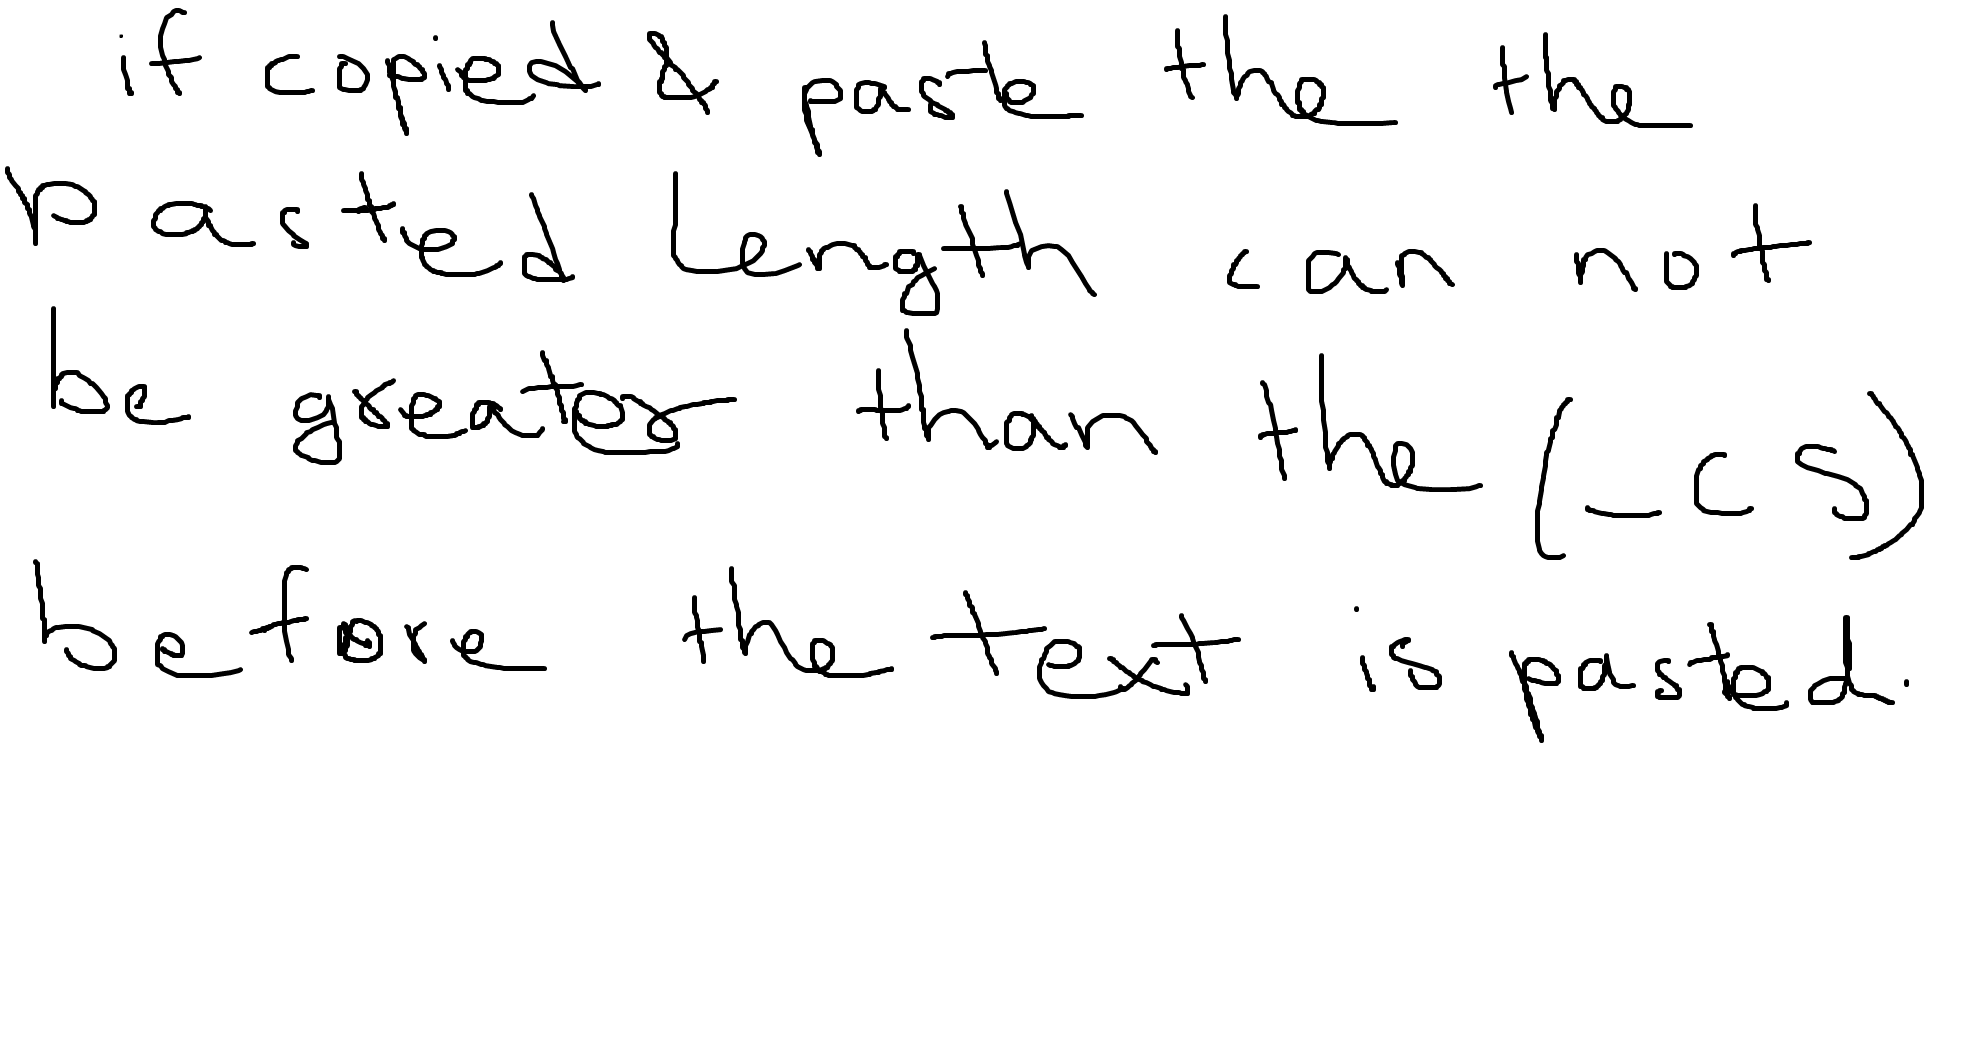 if copied & paste the the
pasted length can not
be greater than the (_cs)
before the text is pasted.